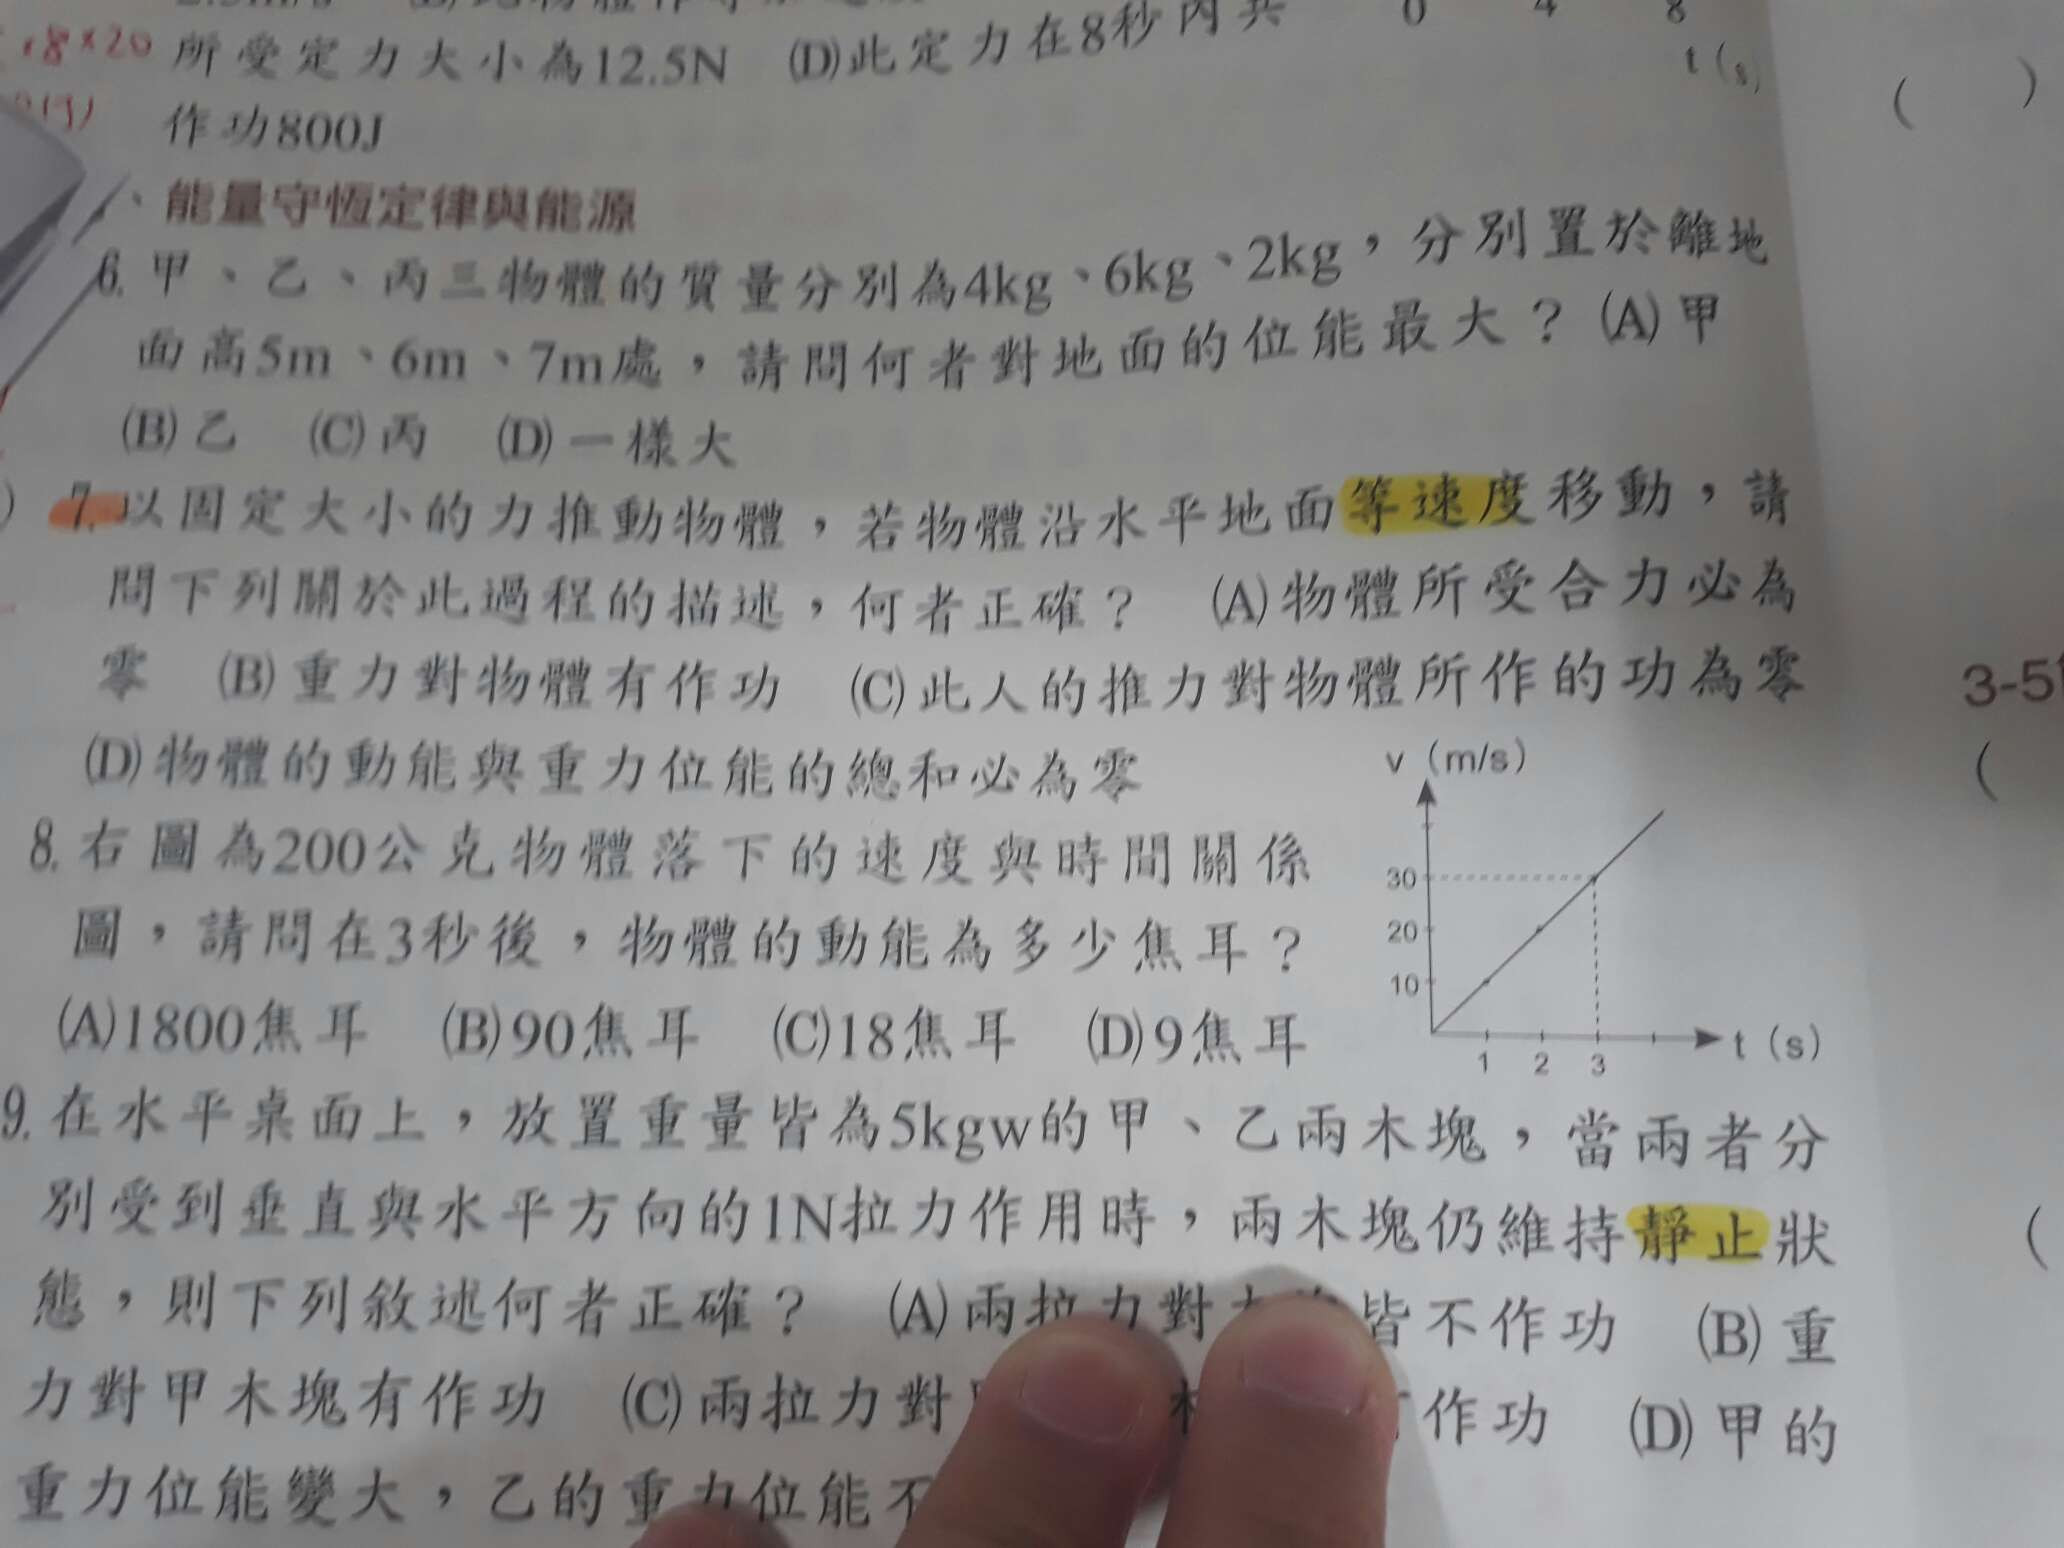 所受定力大小為12.5N (D)此定力在8秒內共
作功800J
0 4 8
t(s)
8×20
、能量守恆定律與能源
6.甲、乙、丙三物體的質量分別為4kg、6kg、2kg，分別置於離地
面高5m、6m、7m處，請問何者對地面的位能最大？(A)甲
(B)乙 (C)丙 (D)一樣大
7.以固定大小的力推動物體，若物體沿水平地面等速度移動，請
問下列關於此過程的描述，何者正確？ (A)物體所受合力必為
零 (B)重力對物體有作功 (C)此人的推力對物體所作的功為零
(D)物體的動能與重力位能的總和必為零
8.右圖為200公克物體落下的速度與時間關係
圖，請問在3秒後，物體的動能為多少焦耳？
(A)1800焦耳 (B)90焦耳 (C)18焦耳 (D)9焦耳
v (m/s)
30
20
10
1 2 3
t (s)
9.在水平桌面上，放置重量皆為5kgw的甲、乙兩木塊，當兩者分
別受到垂直與水平方向的1N拉力作用時，兩木塊仍維持靜止狀
態，則下列敘述何者正確？ (A)兩拉力對 皆不作功 (B)重
力對甲木塊有作功 (C)兩拉力對 作功 (D)甲的
重力位能變大，乙的重力位能不
( )
3-5
(
(